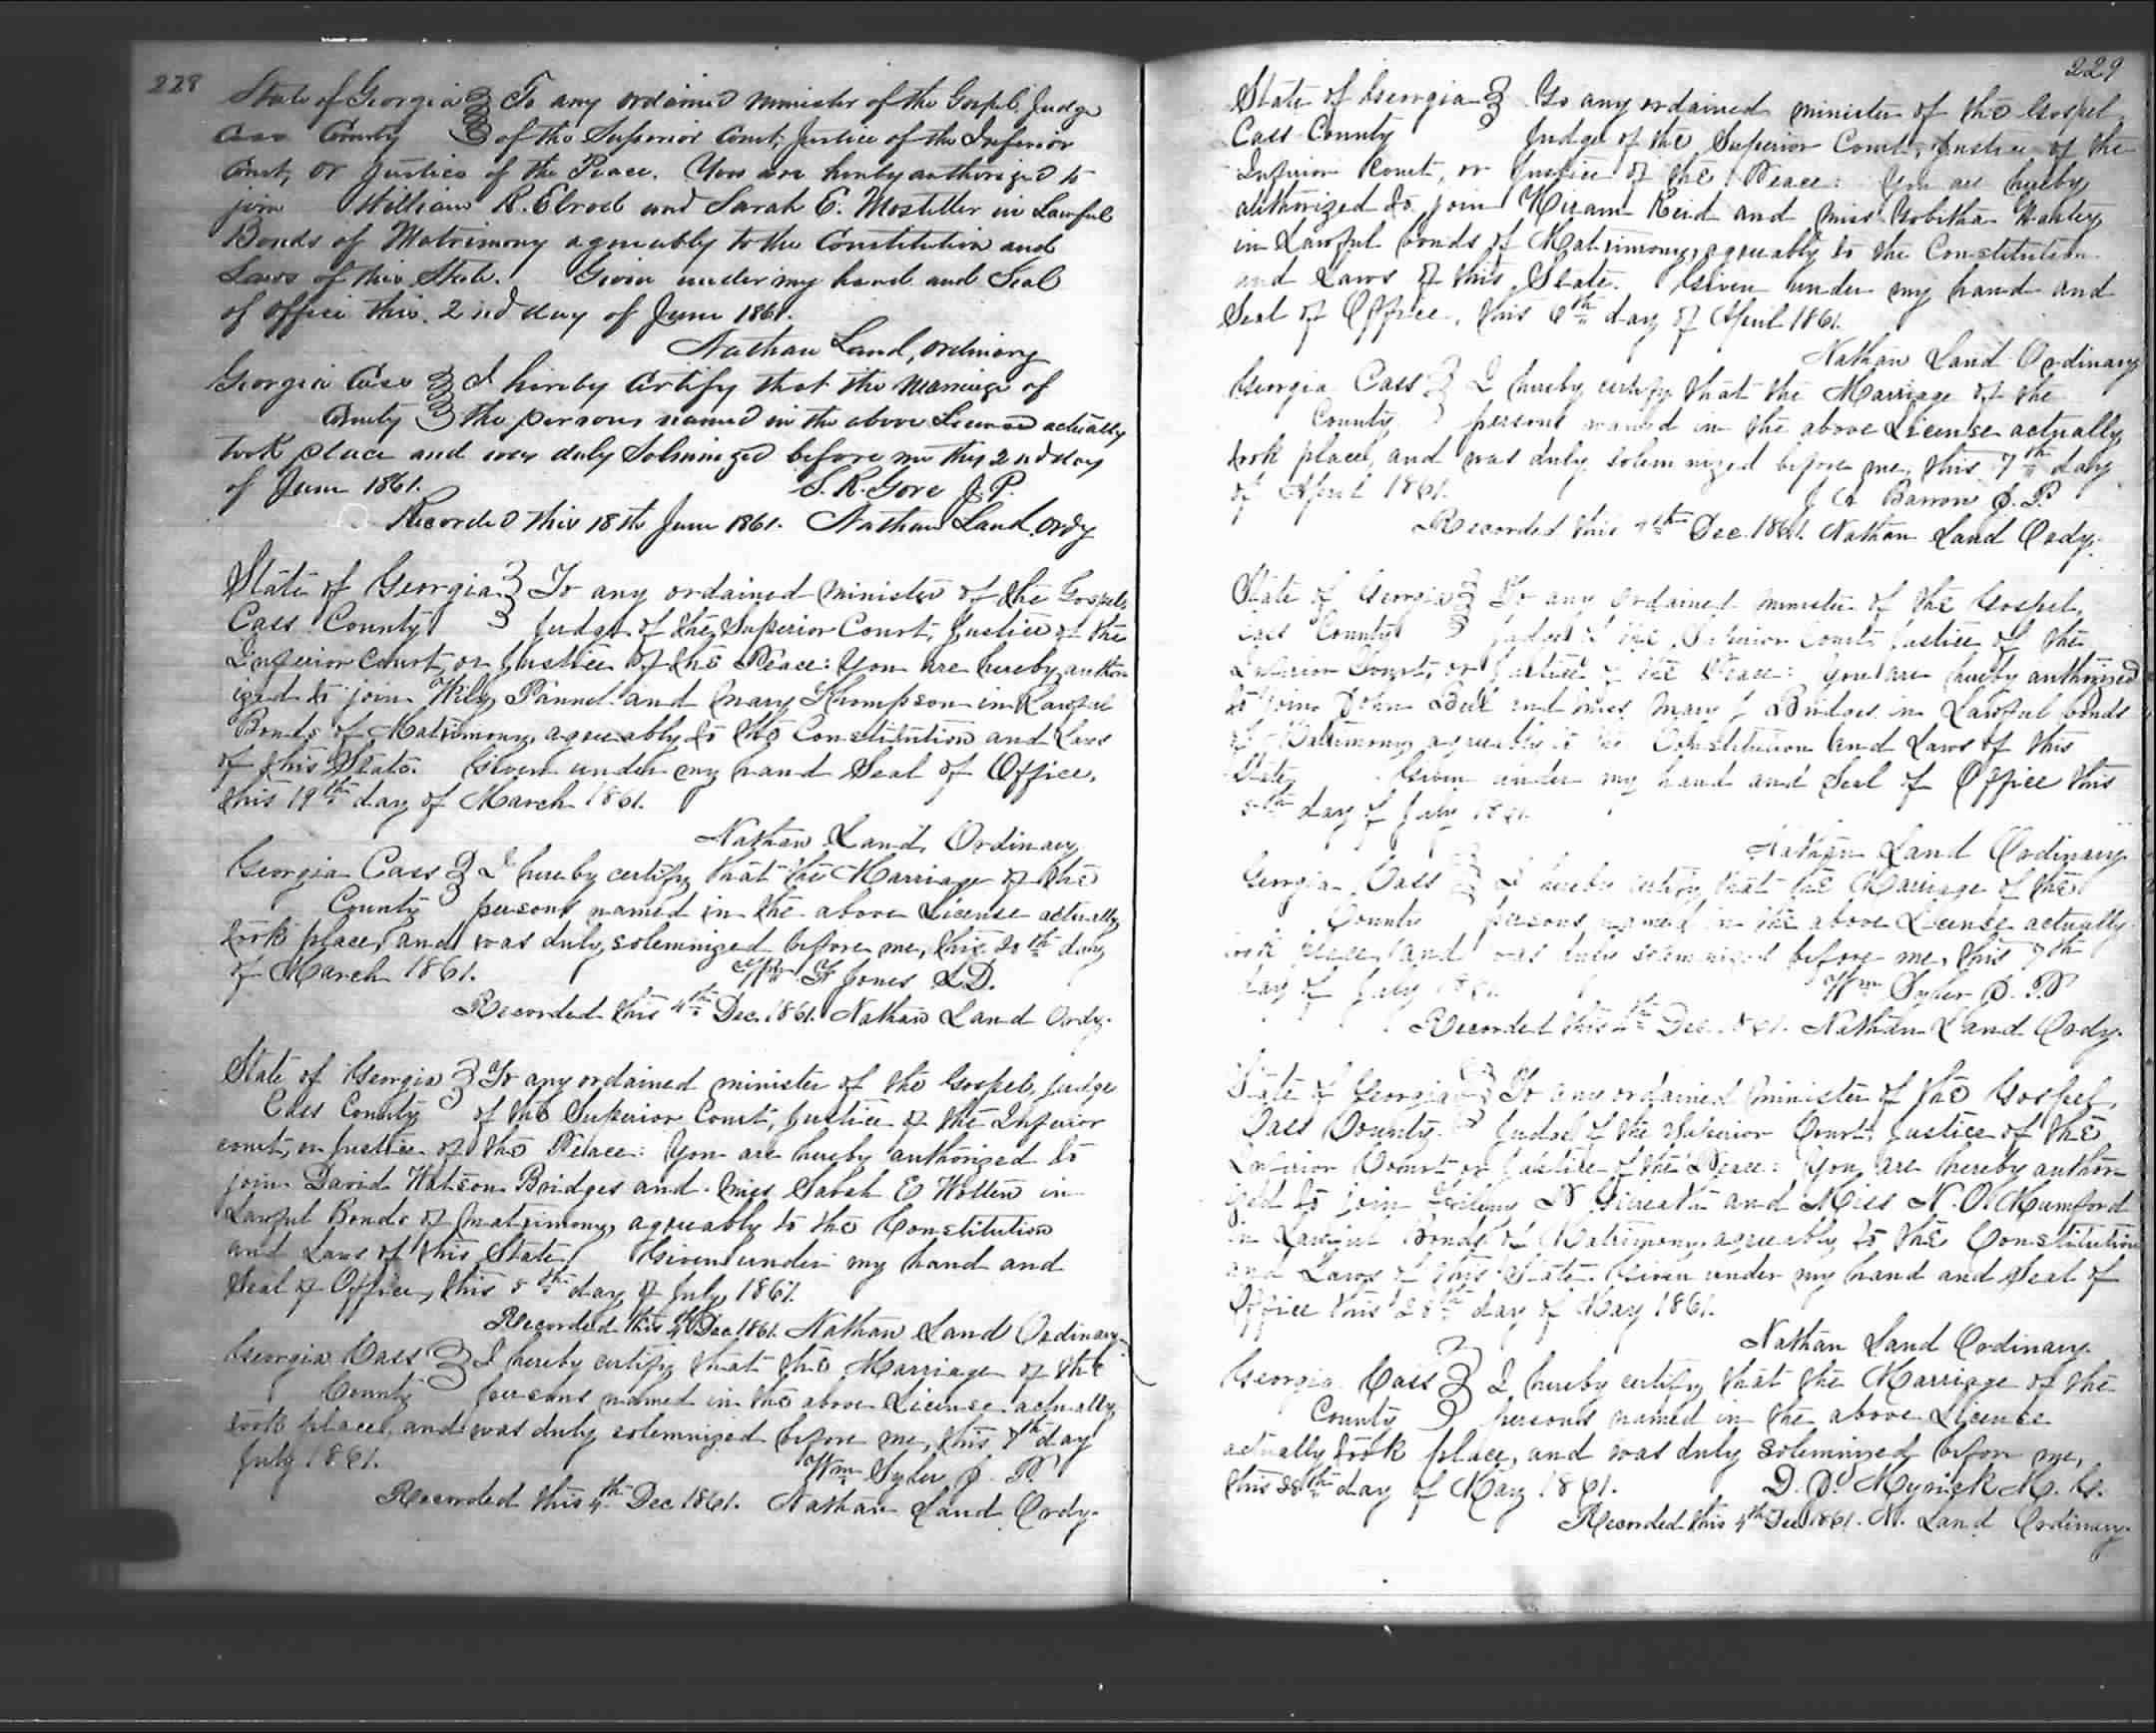 228
State of Georgia } To any ordained minister of the Gospel, Judge
Cass County } of the Superior Court, Justice of the Inferior
Court, or Justice of the Peace. You are hereby authorized to
join William R. Elrod and Sarah E. Mosteller in Lawful
Bonds of Matrimony agreeably to the Constitution and
Laws of this State. Given under my hand and Seal
of office this 2nd day of June 1861.
Nathan Land, Ordinary
Georgia Cass } I hereby Certify that the marriage of
County } the persons named in the above License actually
took place and was duly Solminized before me this 2nd day
of June 1861. S. R. Gore J. P.
Recorded this 18th June 1861. Nathan Land, Ordy
State of Georgia } To any ordained minister of the Gospel,
Cass County } Judge of the Superior Court, Justice of the
Inferior Court, or Justice of the Peace: You are hereby author-
ized to join Wily Pannel and Mary Thompson in Lawful
Bonds of Matrimony, agreeably to the Constitution and Laws
of this State. Given under my hand Seal of Office,
this 19th day of March 1861.
Nathan Land, Ordinary
Georgia Cass } I hereby certify that the Marriage of the
County } persons named in the above License actually
took place, and was duly solemnized before me, this 20th day
of March 1861. Wm F Jones L.D.
Recorded this 4th Dec. 1861. Nathan Land Ordy.
State of Georgia } To any ordained minister of the Gospel, Judge
Cass County } of the Superior Court, Justice of the Inferior
court, or Justice of the Peace: You are hereby authorized to
join David Watson Bridges and Miss Sarah E in
Lawful Bonds of Matrimony, agreeably to the Constitution
and Laws of this State. Given under my hand and
Seal of Office, this 5th day of July, 1861.
Recorded this 4th Dec 1861. Nathan Land Ordinary
Georgia Cass } I hereby certify that the Marriage of the
County } persons named in the above License actually
took place, and was duly solemnized before me, this 7th day
July 1861. Wm J. P.
Recorded this 4th Dec 1861. Nathan Land Ordy.
229
State of Georgia } To any ordained minister of the Gospel,
Cass County } Judge of the Superior Court, Justice of the
Inferior Court, or Justice of the Peace: You are hereby
authorized to join Hiram Reid and Miss
in Lawful bonds of Matrimony, agreeably to the Constitution
and Laws of this State. Given under my hand and
Seal of Office, this 6th day of April 1861.
Nathan Land Ordinary
Georgia Cass } I hereby certify that the Marriage of the
County } persons named in the above License actually
took place, and was duly solemnized before me, this 7th day
of April 1861. J. A. Barron J. P.
Recorded this 4th Dec. 1861. Nathan Land Ordy.
State of Georgia } To any ordained minister of the Gospel,
Cass County } Judge of the Superior Court, Justice of the
Inferior Court, or Justice of the Peace: You are hereby authorized
to join John Bell and Miss Mary Bridges in Lawful bonds
of Matrimony, agreeably to the Constitution and Laws of this
State. Given under my hand and Seal of Office this
5th day of July 1861.
Nathan Land Ordinary
Georgia Cass } I hereby certify that the Marriage of the
County } persons named in the above License actually
took place, and was duly solemnized before me, this 7th
day of July 1861. Wm J. P.
Recorded this 4th Dec. 1861. Nathan Land Ordy.
State of Georgia } To any ordained minister of the Gospel,
Cass County } Judge of the Superior Court, Justice of the
Inferior Court or Justice of the Peace: You are hereby author-
ized to join N and Miss N. O. Mumford
in Lawful Bonds of Matrimony, agreeably to the Constitution
and Laws of this State. Given under my hand and Seal of
Office this 28th day of May 1861.
Nathan Land Ordinary
Georgia Cass } I hereby certify that the Marriage of the
County } persons named in the above License
actually took place, and was duly solemnized before me,
this 28th day of May 1861. D. D. Myrick M. G.
Recorded this 4th Dec 1861. N. Land Ordinary